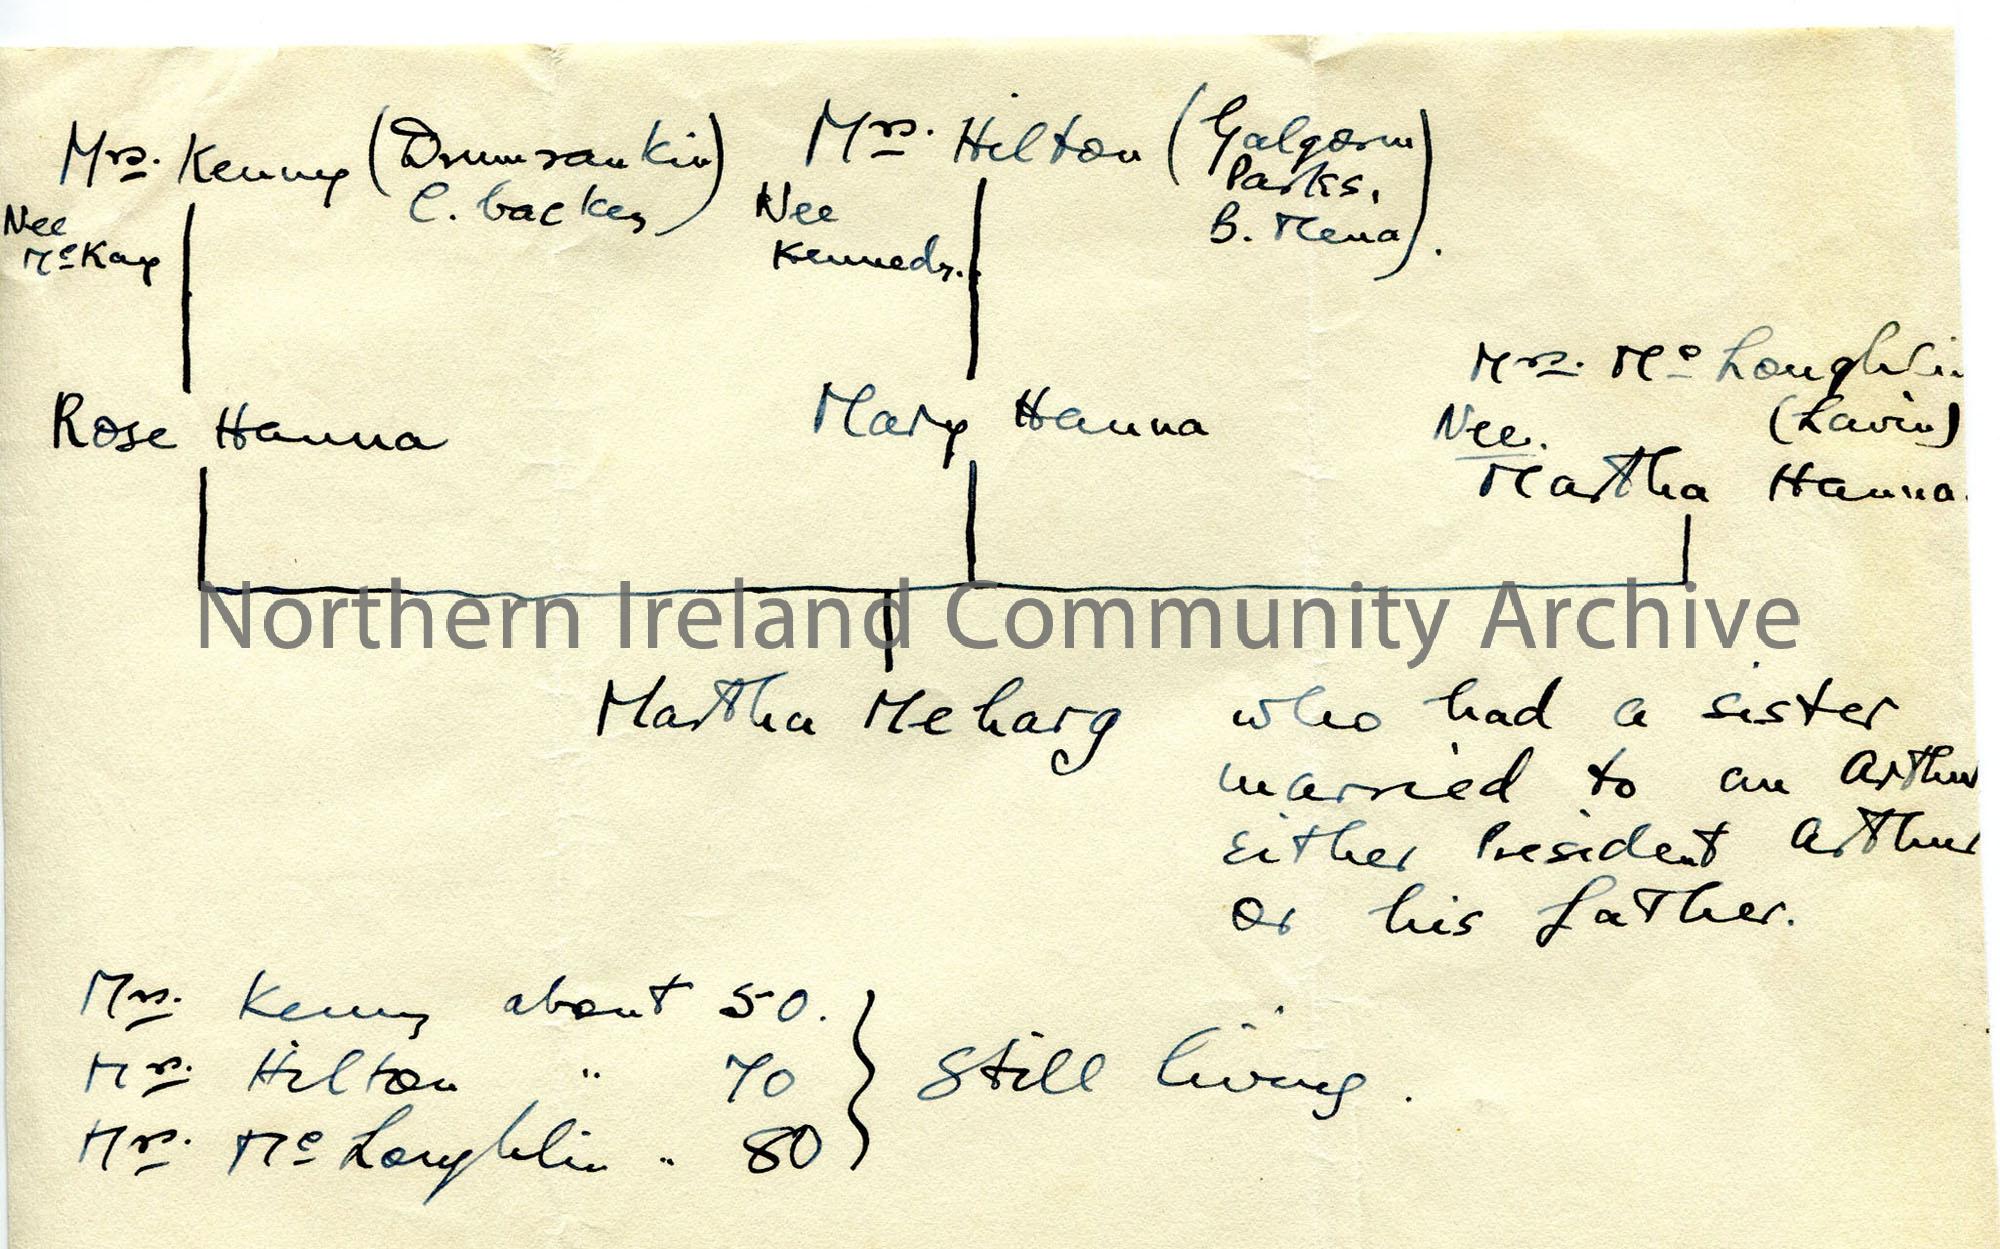 Mrs. Kenny (Drumrankin
C. backey)
Nee
McKay
Mrs. Hilton (Galgorm
Parks,
B. Mena).
Nee
Kennedy.
Mrs. McLoughlin
(Lavin)
Nee.
Martha Hanna.
Rose Hanna
Mary Hanna
Northern Ireland Community Archive
Martha Meharg who had a sister
married to an Arthur
either President Arthur
or his father.
Mrs. Kenny about 50.
Mrs. Hilton " 70
Mrs. McLoughlin " 80
Still living.